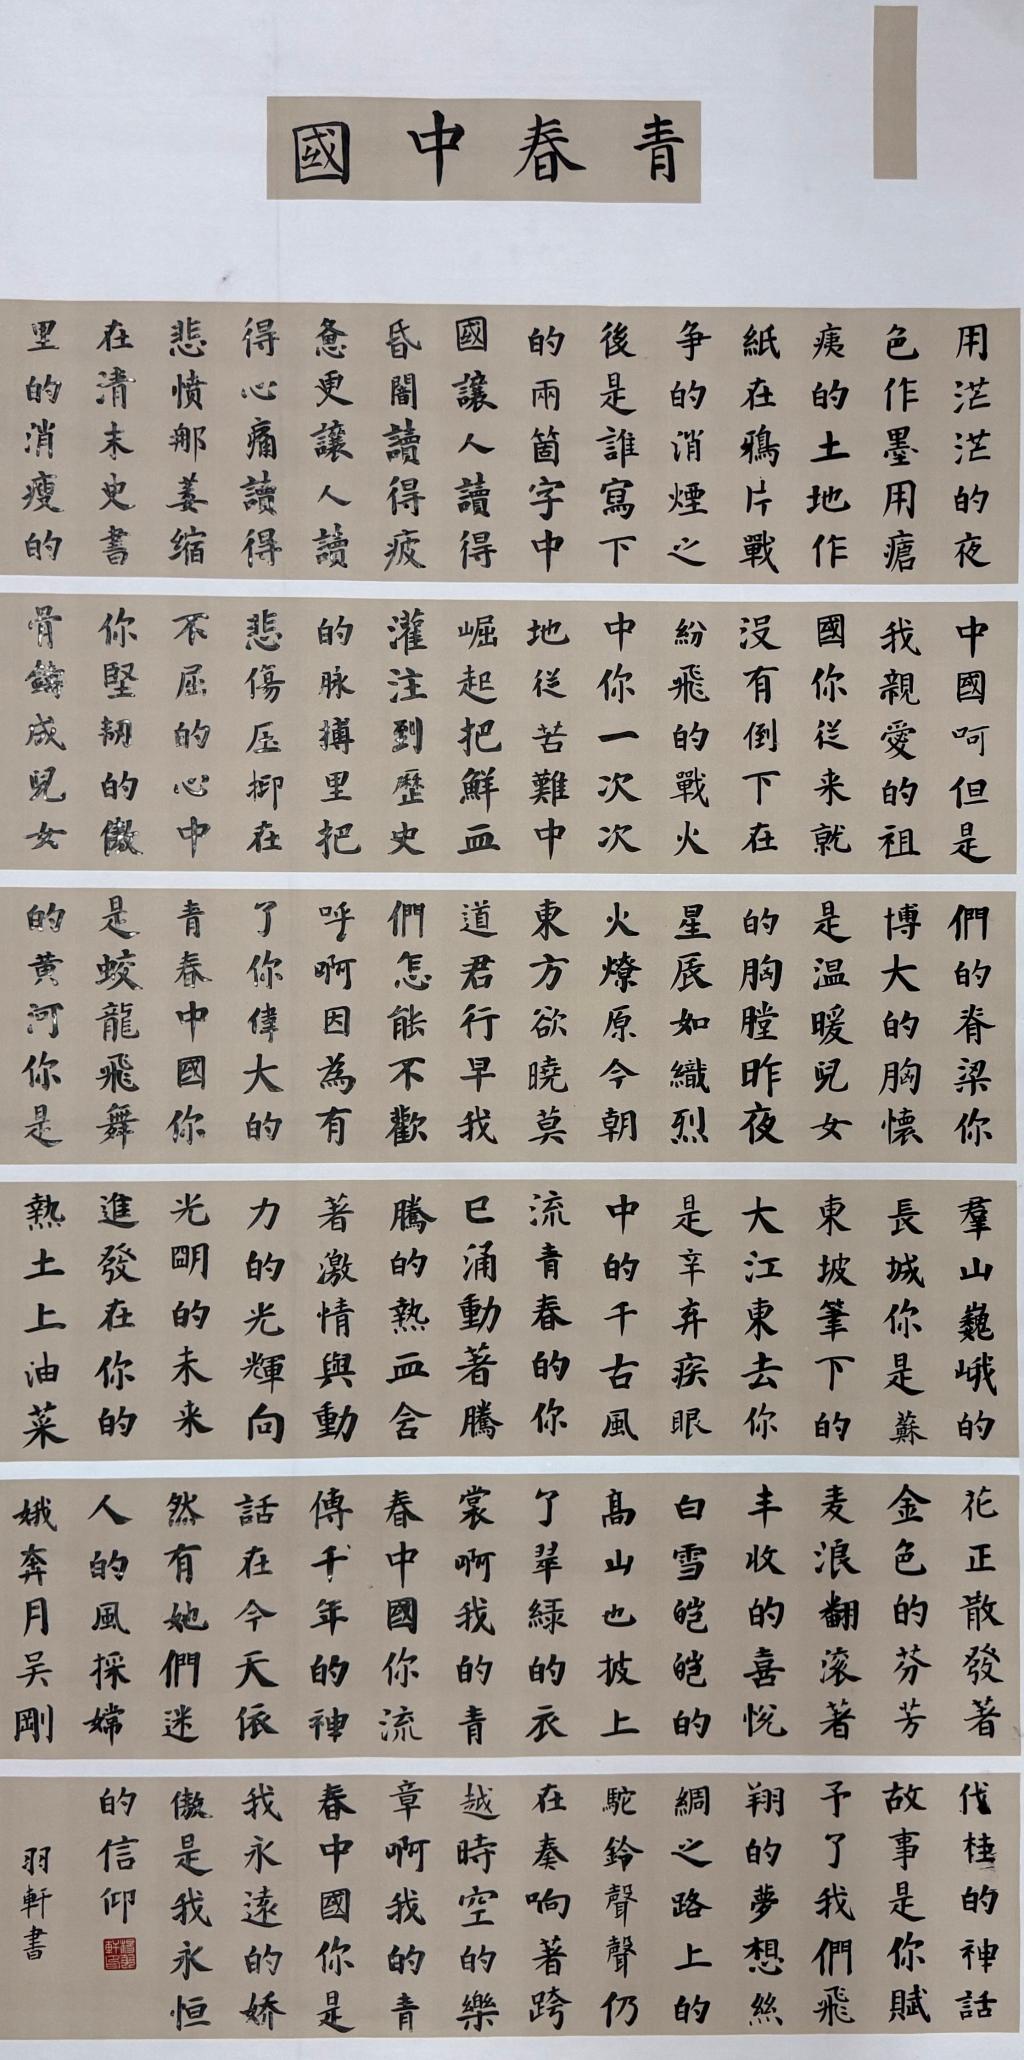 青春中國
用茫茫的夜
色作墨用瘡
痍的土地作
紙在鴉片戰
争的消煙之
後是誰寫下
的兩箇字中
國讓人讀得
昏闇讀得疲
惫更讓人讀
得心痛讀得
悲愤那萎缩
在清末史書
里的消瘦的
中國呵但是
我親愛的祖
國你從来就
没有倒下在
紛飛的戰火
中你一次次
地從苦難中
崛起把鮮血
灌注到歷史
的脉搏里把
悲傷压抑在
不屈的心中
你堅韧的傲
骨鑄成兒女
們的脊梁你
博大的胸懷
是温暖兒女
的胸膛昨夜
星辰如織烈
火燎原今朝
東方欲曉莫
道君行早我
們怎能不歡
呼啊因為有
了你偉大的
青春中國你
是蛟龍飛舞
的黄河你是
羣山巍峨的
長城你是蘇
東坡筆下的
大江東去你
是辛弃疾眼
中的千古風
流青春的你
已涌動著騰
騰的熱血含
著激情與動
力的光輝向
光明的未来
進發在你的
熱土上油菜
花正散發著
金色的芬芳
麦浪翻滚著
丰收的喜悦
白雪皑皑的
高山也披上
了翠緑的衣
裳啊我的青
春中國你流
傳千年的神
話在今天依
然有她們迷
人的風採嫦
娥奔月吴剛
伐桂的神話
故事是你賦
予了我們飛
翔的夢想絲
綢之路上的
駝鈴聲聲仍
在奏响著跨
越時空的樂
章啊我的青
春中國你是
我永遠的娇
傲是我永恒
的信仰
羽軒書